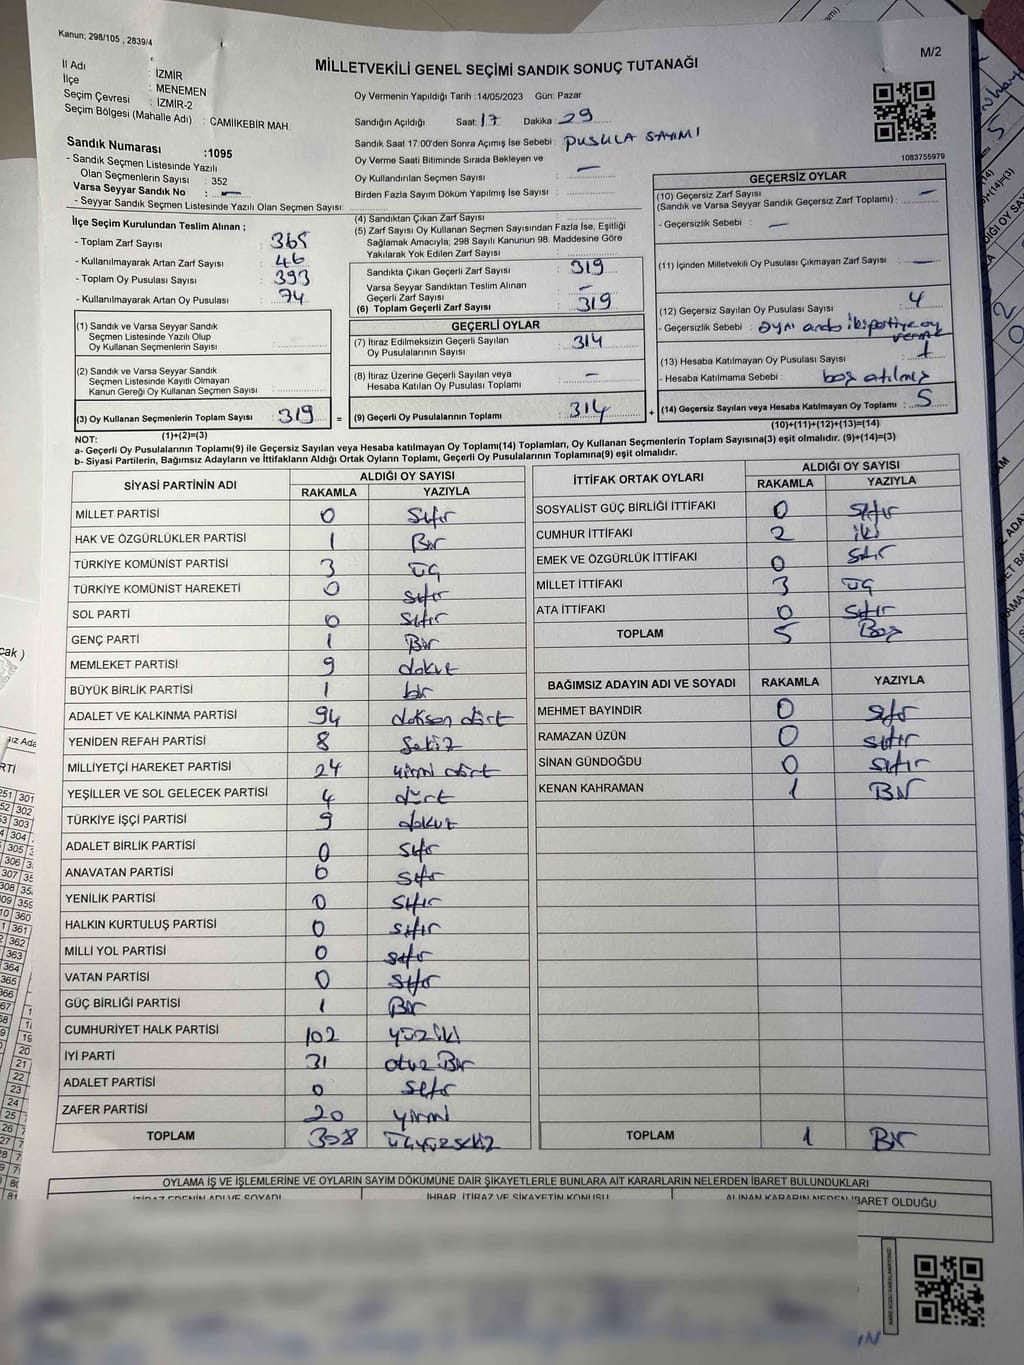 Kanun; 298/105 , 2839/4
M/2
MİLLETVEKİLİ GENEL SEÇİMİ SANDIK SONUÇ TUTANAĞI
İl Adı : İZMİR
İlçe : MENEMEN
Seçim Çevresi : İZMİR-2
Seçim Bölgesi (Mahalle Adı) : CAMİİKEBİR MAH.
Sandık Numarası :1095
- Sandık Seçmen Listesinde Yazılı
Olan Seçmenlerin Sayısı : 352
Varsa Seyyar Sandık No : —
- Seyyar Sandık Seçmen Listesinde Yazılı Olan Seçmen Sayısı:
Oy Vermenin Yapıldığı Tarih :14/05/2023 Gün: Pazar
Sandığın Açıldığı Saat: 17 Dakika : 29
Sandık Saat 17:00'den Sonra Açılmış İse Sebebi : PUSULA SAYIMI
Oy Verme Saati Bitiminde Sırada Bekleyen ve
Oy Kullandırılan Seçmen Sayısı : —
Birden Fazla Sayım Döküm Yapılmış İse Sayısı :
1083755979
İlçe Seçim Kurulundan Teslim Alınan ;
- Toplam Zarf Sayısı : 365
- Kullanılmayarak Artan Zarf Sayısı : 46
- Toplam Oy Pusulası Sayısı : 393
- Kullanılmayarak Artan Oy Pusulası : 74
(1) Sandık ve Varsa Seyyar Sandık
Seçmen Listesinde Yazılı Olup
Oy Kullanan Seçmenlerin Sayısı :
(2) Sandık ve Varsa Seyyar Sandık
Seçmen Listesinde Kayıtlı Olmayan
Kanun Gereği Oy Kullanan Seçmen Sayısı :
(3) Oy Kullanan Seçmenlerin Toplam Sayısı : 319 =
(1)+(2)=(3)
(4) Sandıktan Çıkan Zarf Sayısı :
(5) Zarf Sayısı Oy Kullanan Seçmen Sayısından Fazla İse, Eşitliği
Sağlamak Amacıyla; 298 Sayılı Kanunun 98. Maddesine Göre
Yakılarak Yok Edilen Zarf Sayısı :
Sandıkta Çıkan Geçerli Zarf Sayısı : 319
Varsa Seyyar Sandıktan Teslim Alınan
Geçerli Zarf Sayısı : —
(6) Toplam Geçerli Zarf Sayısı : 319
GEÇERLİ OYLAR
(7) İtiraz Edilmeksizin Geçerli Sayılan
Oy Pusulalarının Sayısı : 314
(8) İtiraz Üzerine Geçerli Sayılan veya
Hesaba Katılan Oy Pusulası Toplamı : —
(9) Geçerli Oy Pusulalarının Toplamı : 314 +
GEÇERSİZ OYLAR
(10) Geçersiz Zarf Sayısı
(Sandık ve Varsa Seyyar Sandık Geçersiz Zarf Toplamı) : —
- Geçersizlik Sebebi : —
(11) İçinden Milletvekili Oy Pusulası Çıkmayan Zarf Sayısı : —
(12) Geçersiz Sayılan Oy Pusulası Sayısı : 4
- Geçersizlik Sebebi : aynı anda iki partiye oy
verme
(13) Hesaba Katılmayan Oy Pusulası Sayısı : 1
- Hesaba Katılmama Sebebi : boş atılmış
(14) Geçersiz Sayılan veya Hesaba Katılmayan Oy Toplamı : 5
(10)+(11)+(12)+(13)=(14)
NOT:
a- Geçerli Oy Pusulalarının Toplamı(9) ile Geçersiz Sayılan veya Hesaba katılmayan Oy Toplamı(14) Toplamları, Oy Kullanan Seçmenlerin Toplam Sayısına(3) eşit olmalıdır. (9)+(14)=(3)
b- Siyasi Partilerin, Bağımsız Adayların ve İttifakların Aldığı Ortak Oyların Toplamı, Geçerli Oy Pusulalarının Toplamına(9) eşit olmalıdır.
SİYASİ PARTİNİN ADI ALDIĞI OY SAYISI
RAKAMLA YAZIYLA
MİLLET PARTİSİ 0 Sıfır
HAK VE ÖZGÜRLÜKLER PARTİSİ 1 Bir
TÜRKİYE KOMÜNİST PARTİSİ 3 üç
TÜRKİYE KOMÜNİST HAREKETİ 0 sıfır
SOL PARTİ 0 Sıfır
GENÇ PARTİ 1 Bir
MEMLEKET PARTİSİ 9 dokuz
BÜYÜK BİRLİK PARTİSİ 1 bir
ADALET VE KALKINMA PARTİSİ 94 doksan dört
YENİDEN REFAH PARTİSİ 8 Sekiz
MİLLİYETÇİ HAREKET PARTİSİ 24 yirmi dört
YEŞİLLER VE SOL GELECEK PARTİSİ 4 dört
TÜRKİYE İŞÇİ PARTİSİ 9 dokuz
ADALET BİRLİK PARTİSİ 0 Sıfır
ANAVATAN PARTİSİ 0 Sıfır
YENİLİK PARTİSİ 0 Sıfır
HALKIN KURTULUŞ PARTİSİ 0 sıfır
MİLLİ YOL PARTİSİ 0 sıfır
VATAN PARTİSİ 0 Sıfır
GÜÇ BİRLİĞİ PARTİSİ 1 Bir
CUMHURİYET HALK PARTİSİ 102 yüziki
İYİ PARTİ 31 otuz Bir
ADALET PARTİSİ 0 sıfır
ZAFER PARTİSİ 20 yirmi
TOPLAM 308 üçyüzsekiz
İTTİFAK ORTAK OYLARI ALDIĞI OY SAYISI
RAKAMLA YAZIYLA
SOSYALİST GÜÇ BİRLİĞİ İTTİFAKI 0 Sıfır
CUMHUR İTTİFAKI 2 iki
EMEK VE ÖZGÜRLÜK İTTİFAKI 0 Sıfır
MİLLET İTTİFAKI 3 üç
ATA İTTİFAKI 0 Sıfır
TOPLAM 5 Beş
BAĞIMSIZ ADAYIN ADI VE SOYADI RAKAMLA YAZIYLA
MEHMET BAYINDIR 0 sıfır
RAMAZAN ÜZÜN 0 sıfır
SİNAN GÜNDOĞDU 0 sıfır
KENAN KAHRAMAN 1 Bir
TOPLAM 1 Bir
OYLAMA İŞ VE İŞLEMLERİNE VE OYLARIN SAYIM DÖKÜMÜNE DAİR ŞİKAYETLERLE BUNLARA AİT KARARLARIN NELERDEN İBARET BULUNDUKLARI
İTİRAZ EDENİN ADI VE SOYADI İHBAR, İTİRAZ VE ŞİKAYETİN KONUSU ALINAN KARARIN NEDEN İBARET OLDUĞU